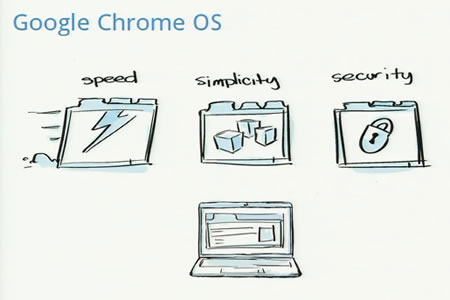 Google Chrome OS
speed simplicity security